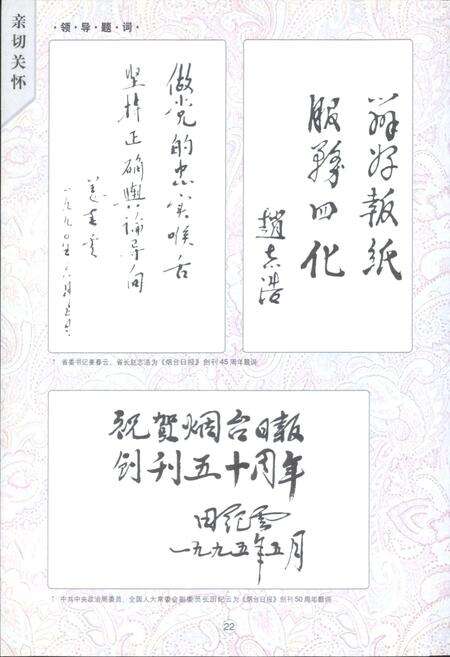 亲切关怀
·领·导·题·词·
做党的忠实喉舌
坚持正确舆论导向
姜春云
办好报纸
服务四化
赵志浩
↑ 省委书记姜春云、省长赵志浩为《烟台日报》创刊45周年题词
祝贺烟台日报
创刊五十周年
田纪云
一九九五年五月
↑ 中共中央政治局委员、全国人大常委会副委员长田纪云为《烟台日报》创刊50周年题词
22